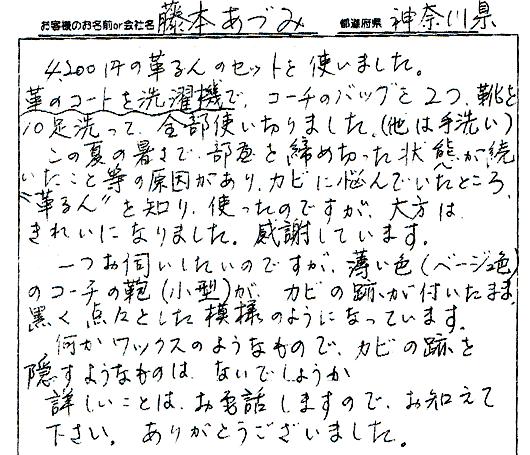 お客様のお名前or会社名 藤本あづみ 都道府県 神奈川県
4,200円の革るんのセットを使いました。
革のコートを洗濯機で、コーチのバッグを2つ、靴を
10足洗って、全部使い切りました。(他は手洗い)
この夏の暑さで、部屋を締め切った状態が続
いたこと等の原因があり、カビに悩んでいたところ、
"革るん"を知り、使ったのですが、大方は
きれいになりました。感謝しています。
一つお伺いしたいのですが、薄い色(ベージュ色)
のコーチの鞄(小型)が、カビの跡が付いたまま、
黒く点々とした模様のようになっています。
何かワックスのようなもので、カビの跡を
隠すようなものは、ないでしょうか
詳しいことは、お電話しますので、お知えて
下さい。ありがとうございました。